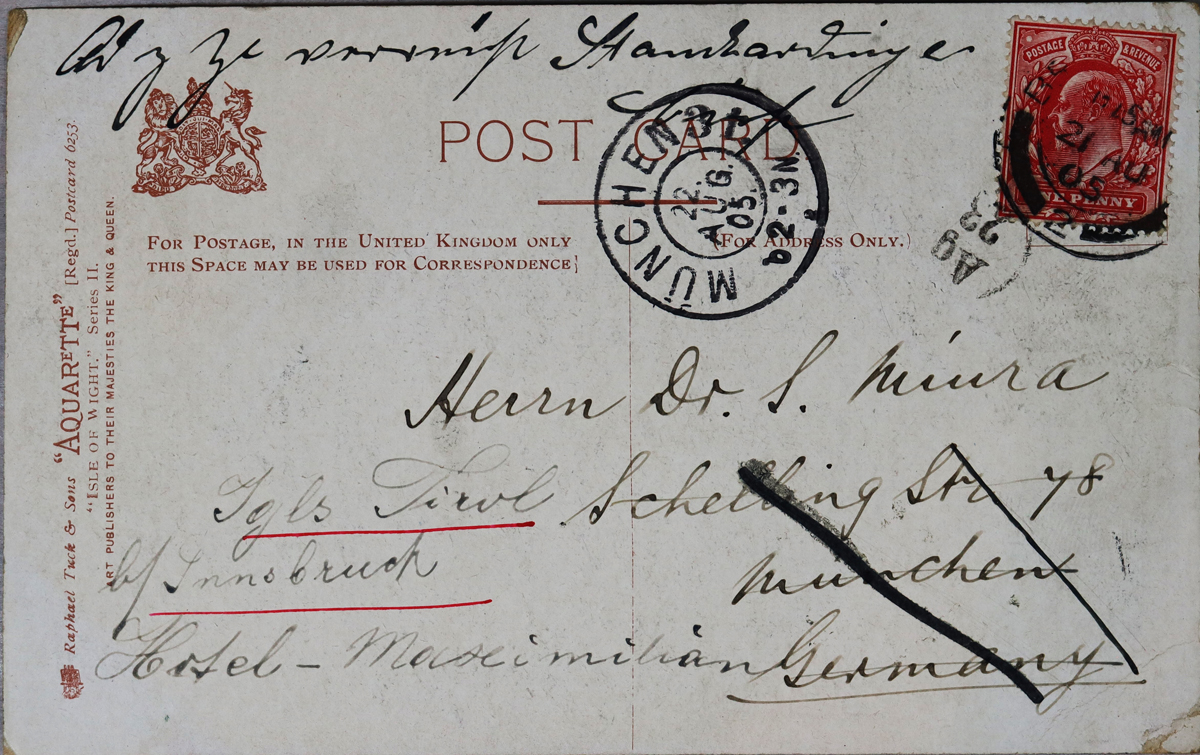 verreist
POST CARD.
FOR POSTAGE, IN THE UNITED KINGDOM ONLY
THIS SPACE MAY BE USED FOR CORRESPONDENCE
(FOR ADDRESS ONLY.)
Raphael Tuck & Sons "AQUARETTE" [Regd.] Postcard 6253.
"ISLE OF WIGHT." Series II.
ART PUBLISHERS TO THEIR MAJESTIES THE KING & QUEEN.
POSTAGE & REVENUE
E PENNY
21 AU
05
MÜNCHEN 31
22.
AUG.
05.
2-3N
Ag
23
Herrn Dr. S. Miura
Schelling Str 78
München
Germany
Igls Tirol
b/ Innsbruck
Hotel - Maximilian